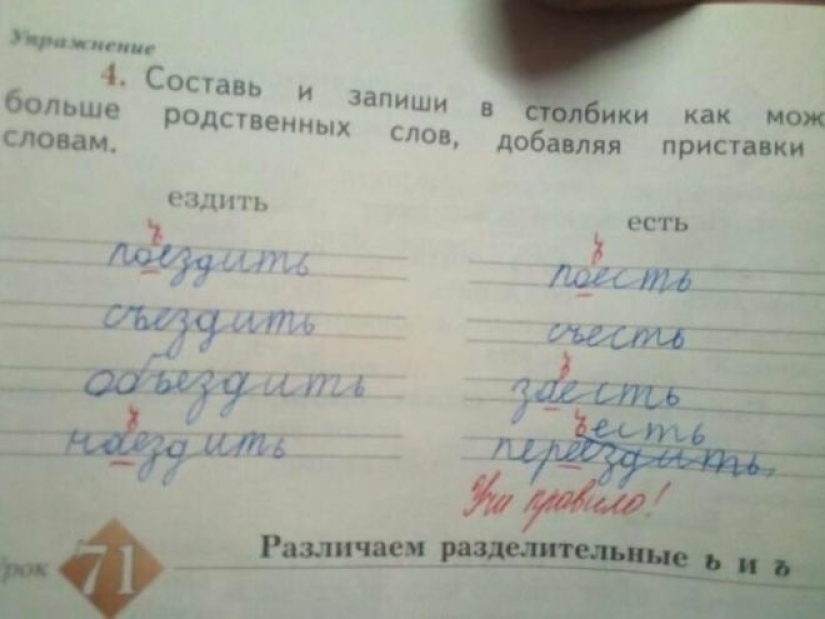 Упражнение
4. Составь и запиши в столбики как мож
больше родственных слов, добавляя приставки
словам.
ездить
есть
ъ
поездить
ъ
поесть
съездить
съесть
объездить
ъ
заесть
ъ
наездить
ъесть
переездить,
Учи правило!
рок 71
Различаем разделительные ь и ъ